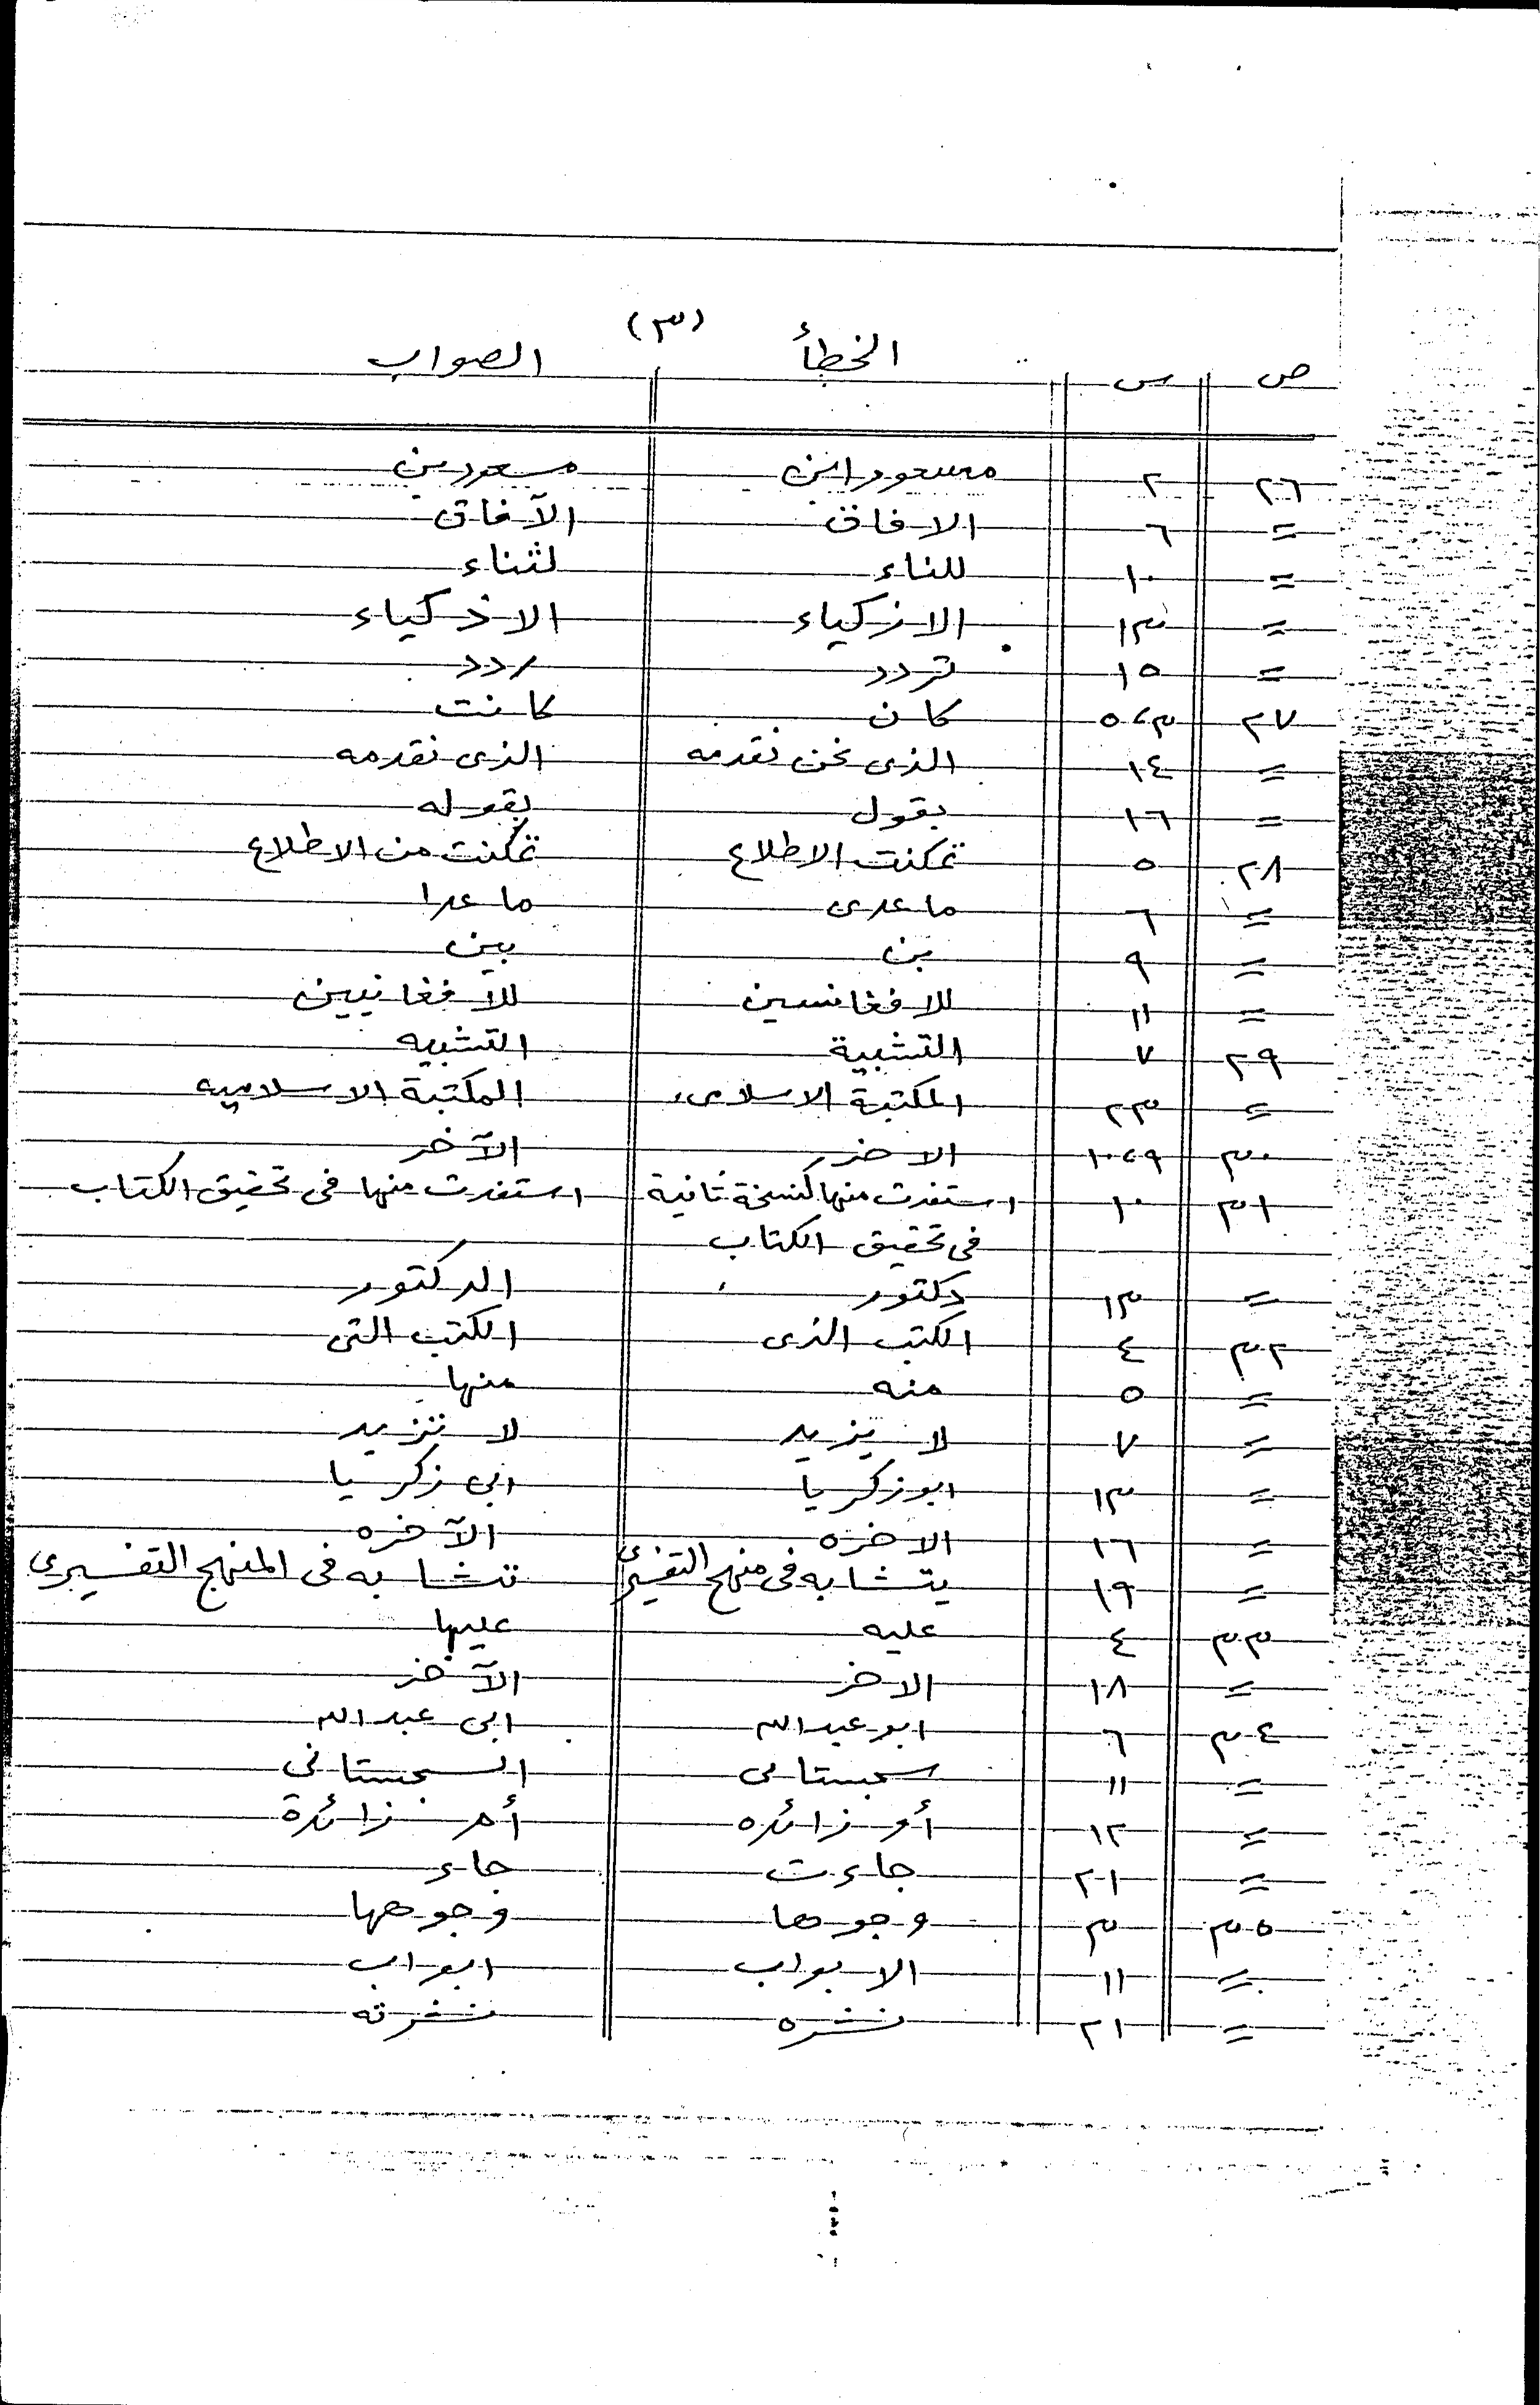 (٣)
ص س الخطأ الصواب
٢٦ ٢ مسعود ابن مسعود بن
= ٦ الافاق الآفاق
= ١٠ للناء لثناء
= ١٣ الازكياء الاذكياء
= ١٥ تردد ردد
٢٧ ٥،٣ كان كانت
= ١٤ الذى نحن نقدمه الذى نقدمه
= ١٦ بقول بقوله
٢٨ ٥ تمكنت الاطلاع تمكنت من الاطلاع
= ٦ ما عدى ما عدا
= ٩ بن بين
= ١١ للافغانسين للافغانيين
٢٩ ٧ التشبية التشبيه
= ٢٣ المكتبة الاسلامى المكتبة الاسلاميه
٣٠ ١٠،٩ الاخر الآخر
٣١ ١٠ استفدت منها كنسخة ثانية استفدت منها فى تحقيق الكتاب
فى تحقيق الكتاب
= ١٣ دكتور الدكتور
٣٢ ٤ الكتب الذى الكتب التى
= ٥ منه منها
= ٧ لا يزيد لا تزيد
= ١٣ ابو زكريا ابى زكريا
= ١٦ الاخره الآخره
= ١٩ يتشابه فى منهج التفسيرى تتشابه فى المنهج التفسيرى
٣٣ ٤ عليه عليها
= ١٨ الاخر الآخر
٣٤ ٦ ابو عبدالله ابى عبدالله
= ١١ سجستانى السجستانى
= ١٢ أو زائده أم زائدة
= ٢١ جاءت جاء
٣٥ ٣ وجوها وجوهها
= ١١ الابواب ابواب
= ٢١ نشره نشرته